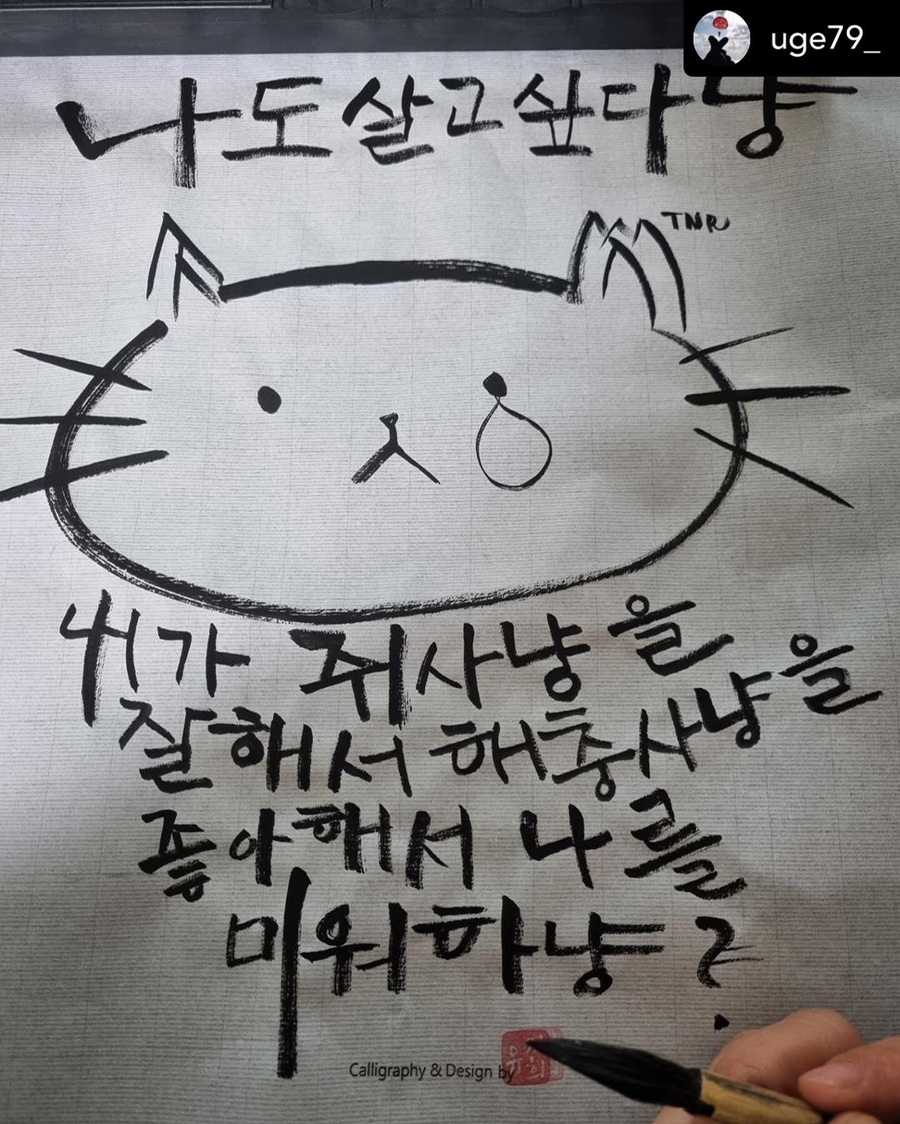 uge79_
나도 살고 싶다냥
TNR
내가 쥐사냥을
잘해서 해충사냥을
좋아해서 나를
미워하냥?
Calligraphy & Design by